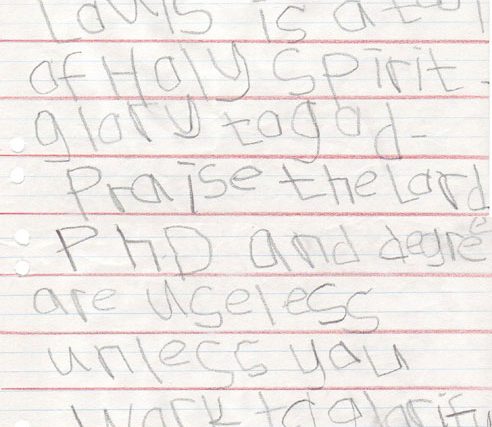 is a
of Holy Spirit -
glory to god -
Praise the Lord
PHD and degree
are useless
unless you
work to glorify